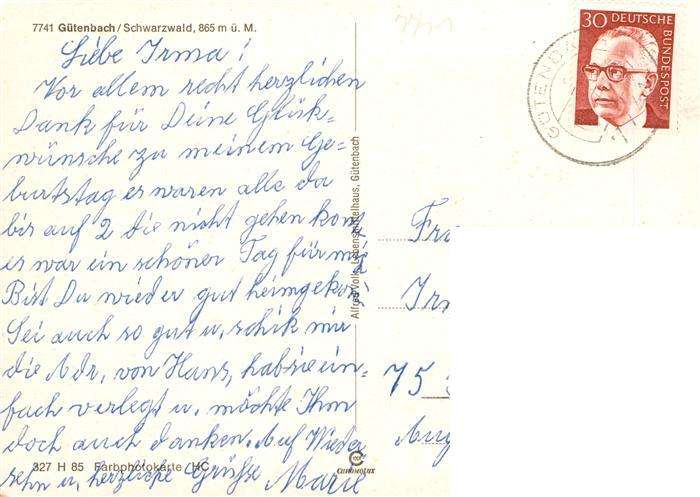 7741 Gütenbach/Schwarzwald, 865 m ü. M.
Liebe Irma!
Vor allem recht herzlichen
Dank für Deine Glük-
wünsche zu meinem Ge-
burtstag es waren alle da
bis auf 2 die nicht gehen kon
es war ein schöner Tag für mi
Bist Du wieder gut heimgekom
Sei auch so gut u, schik mir
die Adr, von Hans, hab sie ein-
fach verlegt u, möchte Ihm
doch auch danken. Auf Wieder
sehn u, herzliche Grüße Marie
327 H 85 Farbphotokarte HC
CHROMOLUX
Alfred Volk, Lebensmittelhaus, Gütenbach
30 DEUTSCHE BUNDESPOST
GÜTENB
Fr
Irm
75
Aug